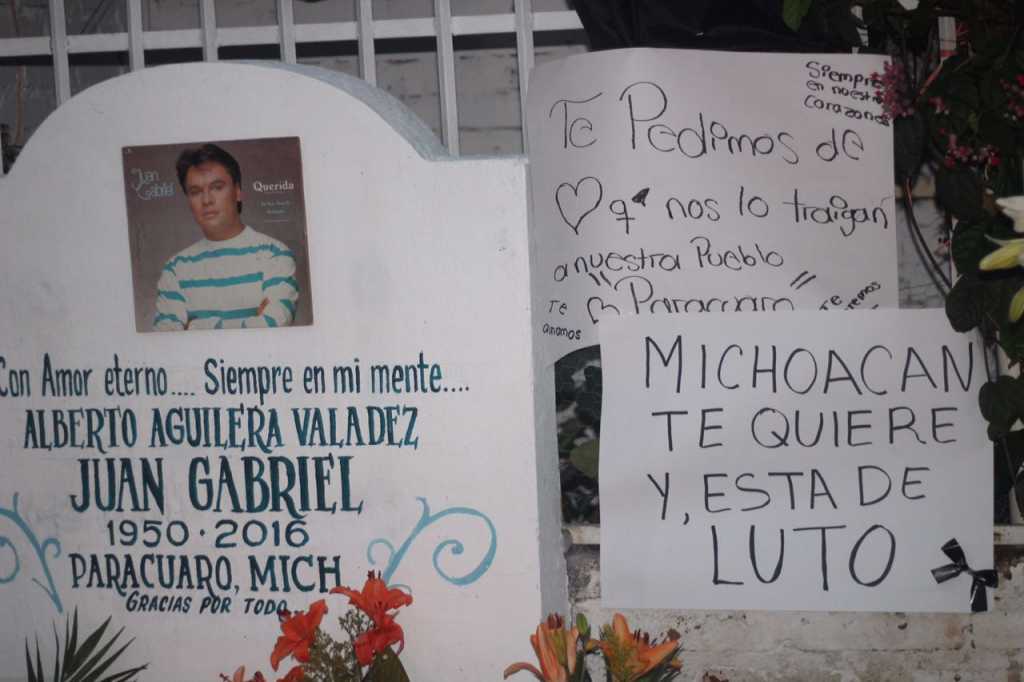 Juan
Gabriel
Querida
Con Amor eterno.... Siempre en mi mente....
ALBERTO AGUILERA VALADEZ
JUAN GABRIEL
1950 · 2016
PARACUARO, MICH
GRACIAS POR TODO...
Siempre
en nuestro
corazone
Te Pedimos de
nos lo traigan
a nuestra Pueblo
"Paracuaro"
Te
amamos
MICHOACAN
TE QUIERE
Y, ESTA DE
LUTO